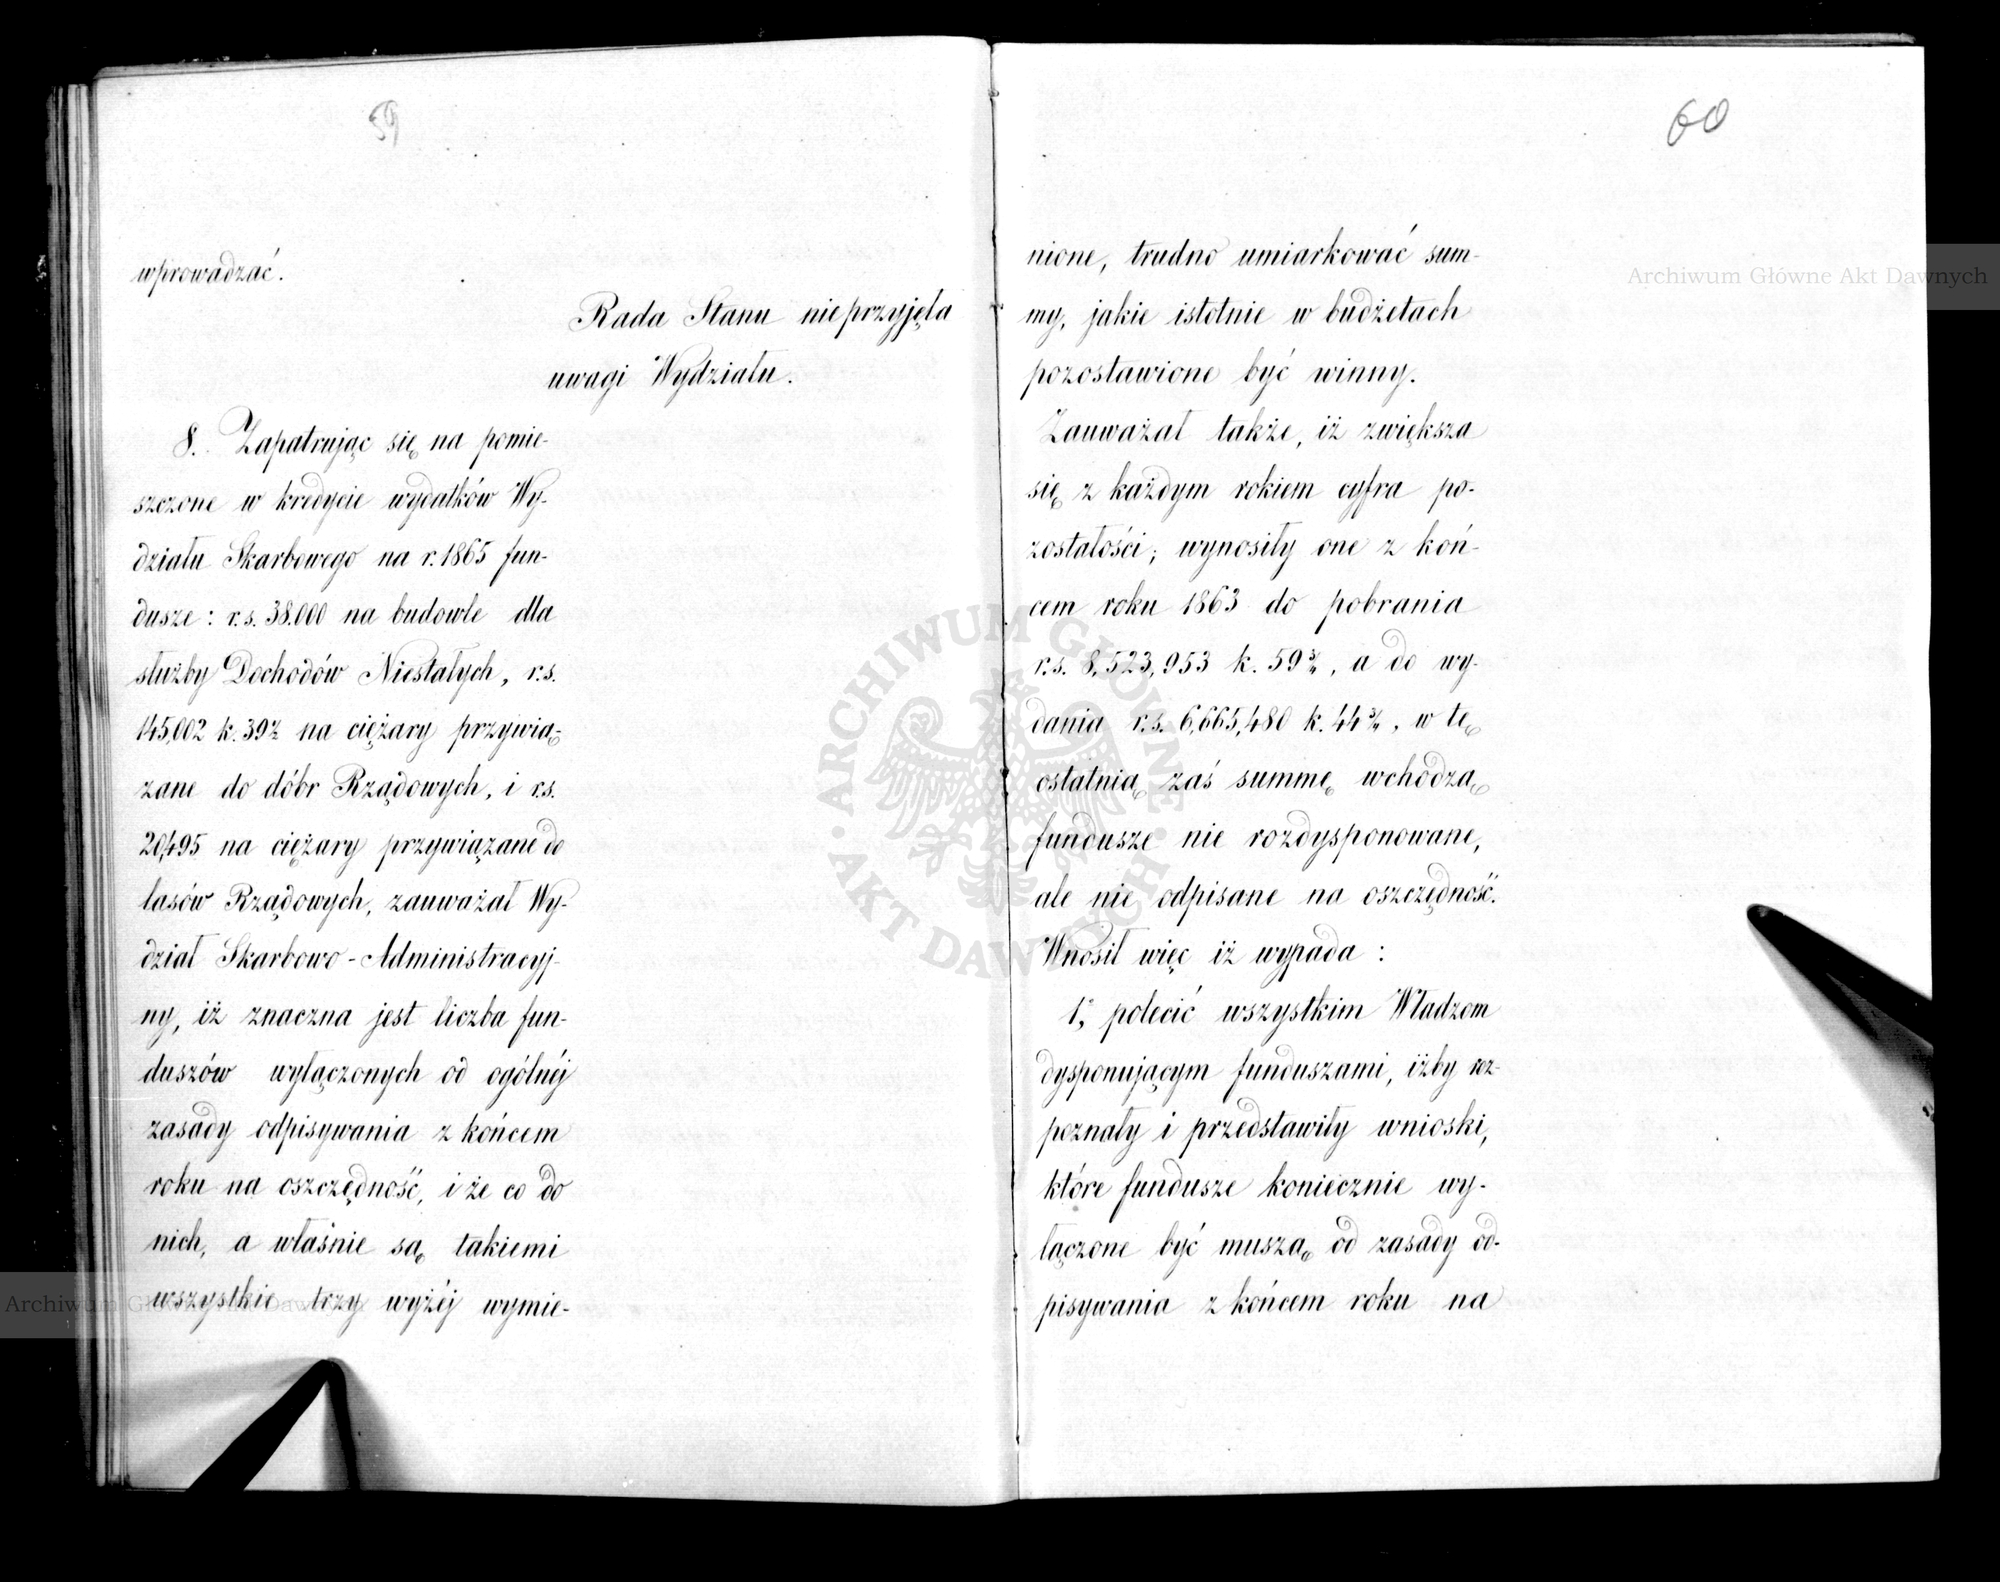 59
wprowadzać.
Rada Stanu nieprzyjęła
uwagi Wydziału.
8. Zapatrując się na pomie-
szczone w kredycie wydatków Wy-
działu Skarbowego na r. 1865 fun-
dusze: r.s. 38.000 na budowle dla
służby Dochodów Niestałych, r.s.
145,002 k. 39½ na ciężary przywią-
zane do dóbr Rządowych, i r.s.
20,495 na ciężary przywiązane do
lasów Rządowych, zauważał Wy-
dział Skarbowo-Administracyj-
ny, iż znaczna jest liczba fun-
duszów wyłączonych od ogólnéj
zasady odpisywania z końcem
roku na oszczędność, i że co do
nich, a właśnie są takiemi
wszystkie trzy wyżéj wymie-
60
nione, trudno umiarkować sum-
my, jakie istotnie w budżetach
pozostawione być winny.
Zauważał także, iż zwiększa
się z każdym rokiem cyfra po-
zostałości; wynosiły one z koń-
cem roku 1863 do pobrania
r.s. 8,523,953 k. 59¾, a do wy-
dania r.s. 6,665,480 k. 44¾, w tę
ostatnią zaś summę wchodzą
fundusze nie rozdysponowane,
ale nie odpisane na oszczędność.
Wnosił więc iż wypada:
1°, polecić wszystkim Władzom
dysponującym funduszami, iżby roz-
poznały i przedstawiły wnioski,
które fundusze koniecznie wy-
łączone być muszą od zasady od-
pisywania z końcem roku na
Archiwum Główne Akt Dawnych
Archiwum Główne Akt Dawnych
ARCHIWUM GŁÓWNE AKT DAWNYCH